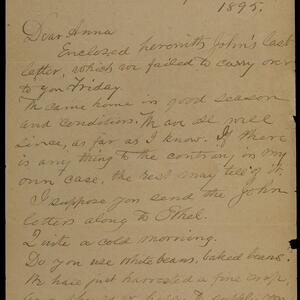 1895.
Dear Anna
Enclosed herewith John's last
letter, which we failed to carry over
to you Friday.
We came home in good season
and condition. We are all well
since, as far as I know. If there
is any thing to the contrary in my
own case, the rest may tell of it.
I suppose you send the John
letters along to Ethel.
Quite a cold morning.
Do you use white beans, baked beans?
We have just harvested a fine crop,